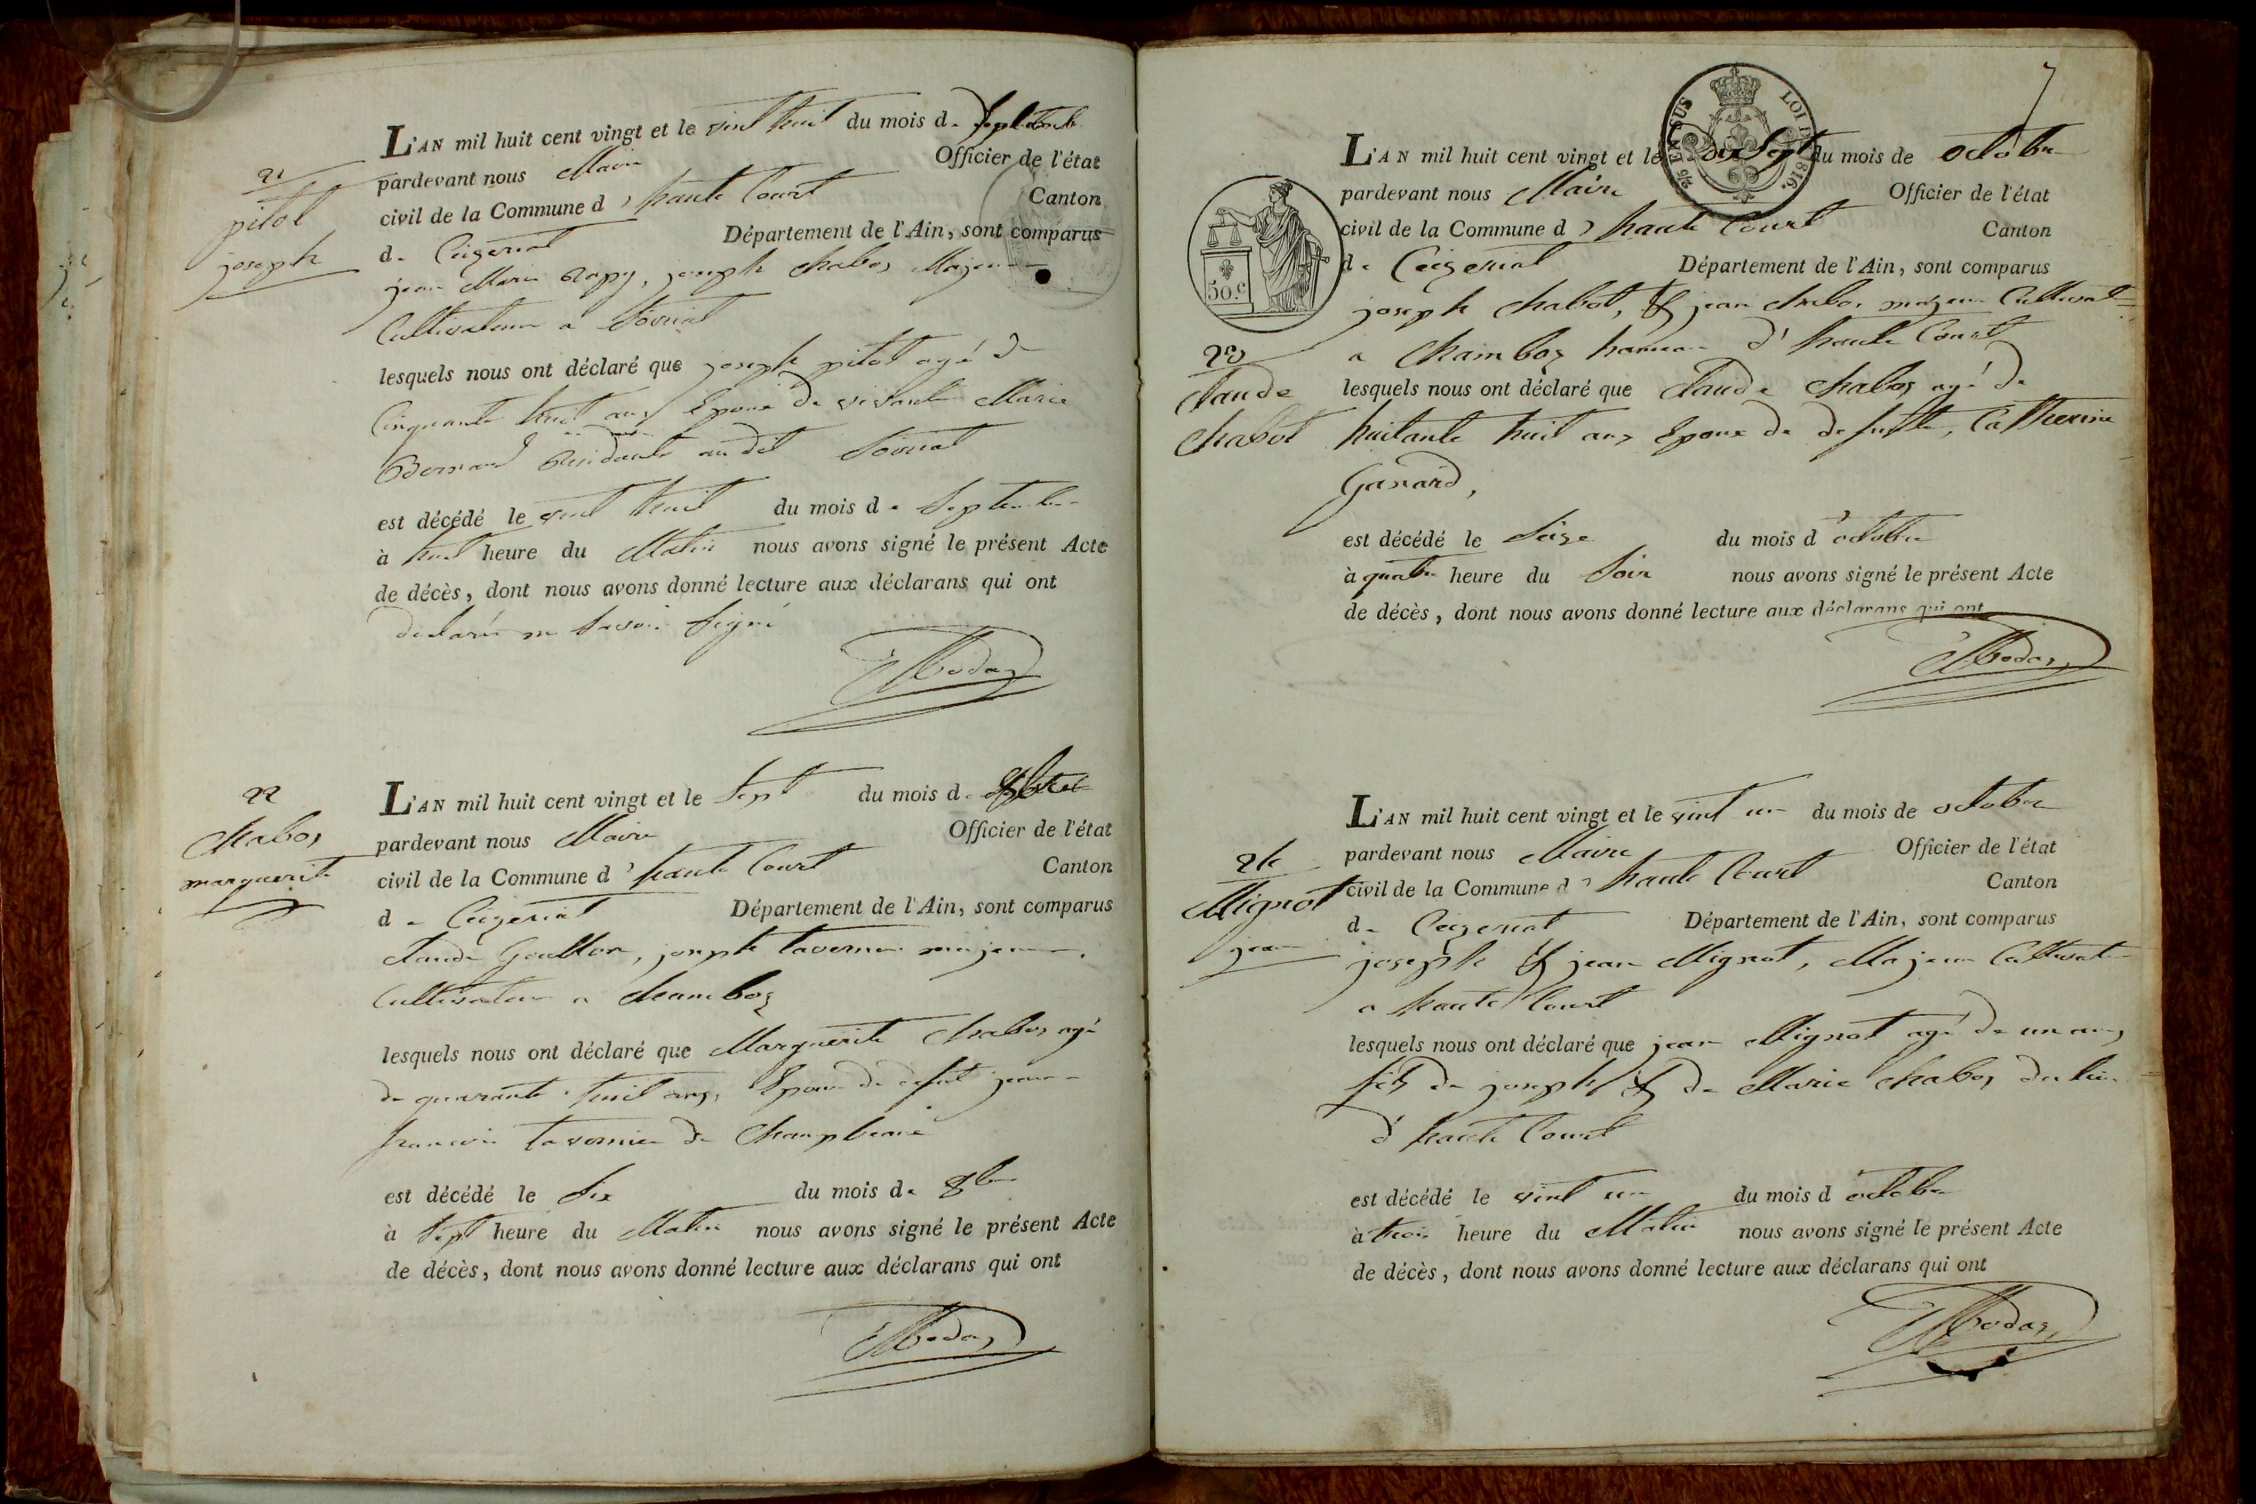 21
pitol
joseph
L'AN mil huit cent vingt et le vint huit du mois de Septembre
pardevant nous Maire Officier de l'état
civil de la Commune d'haute Court Canton
de Ceizeriat Département de l'Ain, sont comparus
jean Marie joseph chabos Majeurs
Cultivateurs a
lesquels nous ont déclaré que joseph pitol agé de
Cinquante huit ans Epoux de vivante Marie
Bernard Residante au dit
est décédé le vint huit du mois de Septembre
à huit heure du Matin nous avons signé le présent Acte
de décès, dont nous avons donné lecture aux déclarans qui ont
declarés ne savoir signé
Bodaz
22
chabos
marguerite
L'AN mil huit cent vingt et le Sept du mois de
pardevant nous Maire Officier de l'état
civil de la Commune d'haute Court Canton
de Ceizeriat Département de l'Ain, sont comparus
claude joseph tavernier majeurs
Cultivateurs a chamboz
lesquels nous ont déclaré que Marguerite chabos agé
de quarante huit ans, Epouse de defunt jean
francois tavernier de
est décédé le Six du mois de 8bre
à Sept heure du Matin nous avons signé le présent Acte
de décès, dont nous avons donné lecture aux déclarans qui ont
Bodaz
7
EN SUS
LOI DE 1816.
50.c
23
claude
chabot
L'AN mil huit cent vingt et le dix Sept du mois de octobre
pardevant nous Maire Officier de l'état
civil de la Commune d'haute Court Canton
de Ceizeriat Département de l'Ain, sont comparus
joseph chabot, & jean chabos majeurs Cultivat=
a chamboz hameau d'haute Court
lesquels nous ont déclaré que claude chabos agé de
huitante huit ans Epoux de defuncte, Catherine
Ganard,
est décédé le Seize du mois d'octobre
à quatre heure du Soir nous avons signé le présent Acte
de décès, dont nous avons donné lecture aux déclarans qui ont
Bodaz
24
Mignot
jean
L'AN mil huit cent vingt et le vint un du mois de octobre
pardevant nous Maire Officier de l'état
civil de la Commune d'haute Court Canton
de Ceizeriat Département de l'Ain, sont comparus
joseph & jean Mignot, Majeurs Cultivat
a haute Court
lesquels nous ont déclaré que jean Mignot agé de un ans
fils de joseph & de Marie chabos du lieu
d'haute Court
est décédé le vint un du mois d'octobre
à trois heure du Matin nous avons signé le présent Acte
de décès, dont nous avons donné lecture aux déclarans qui ont
Bodaz